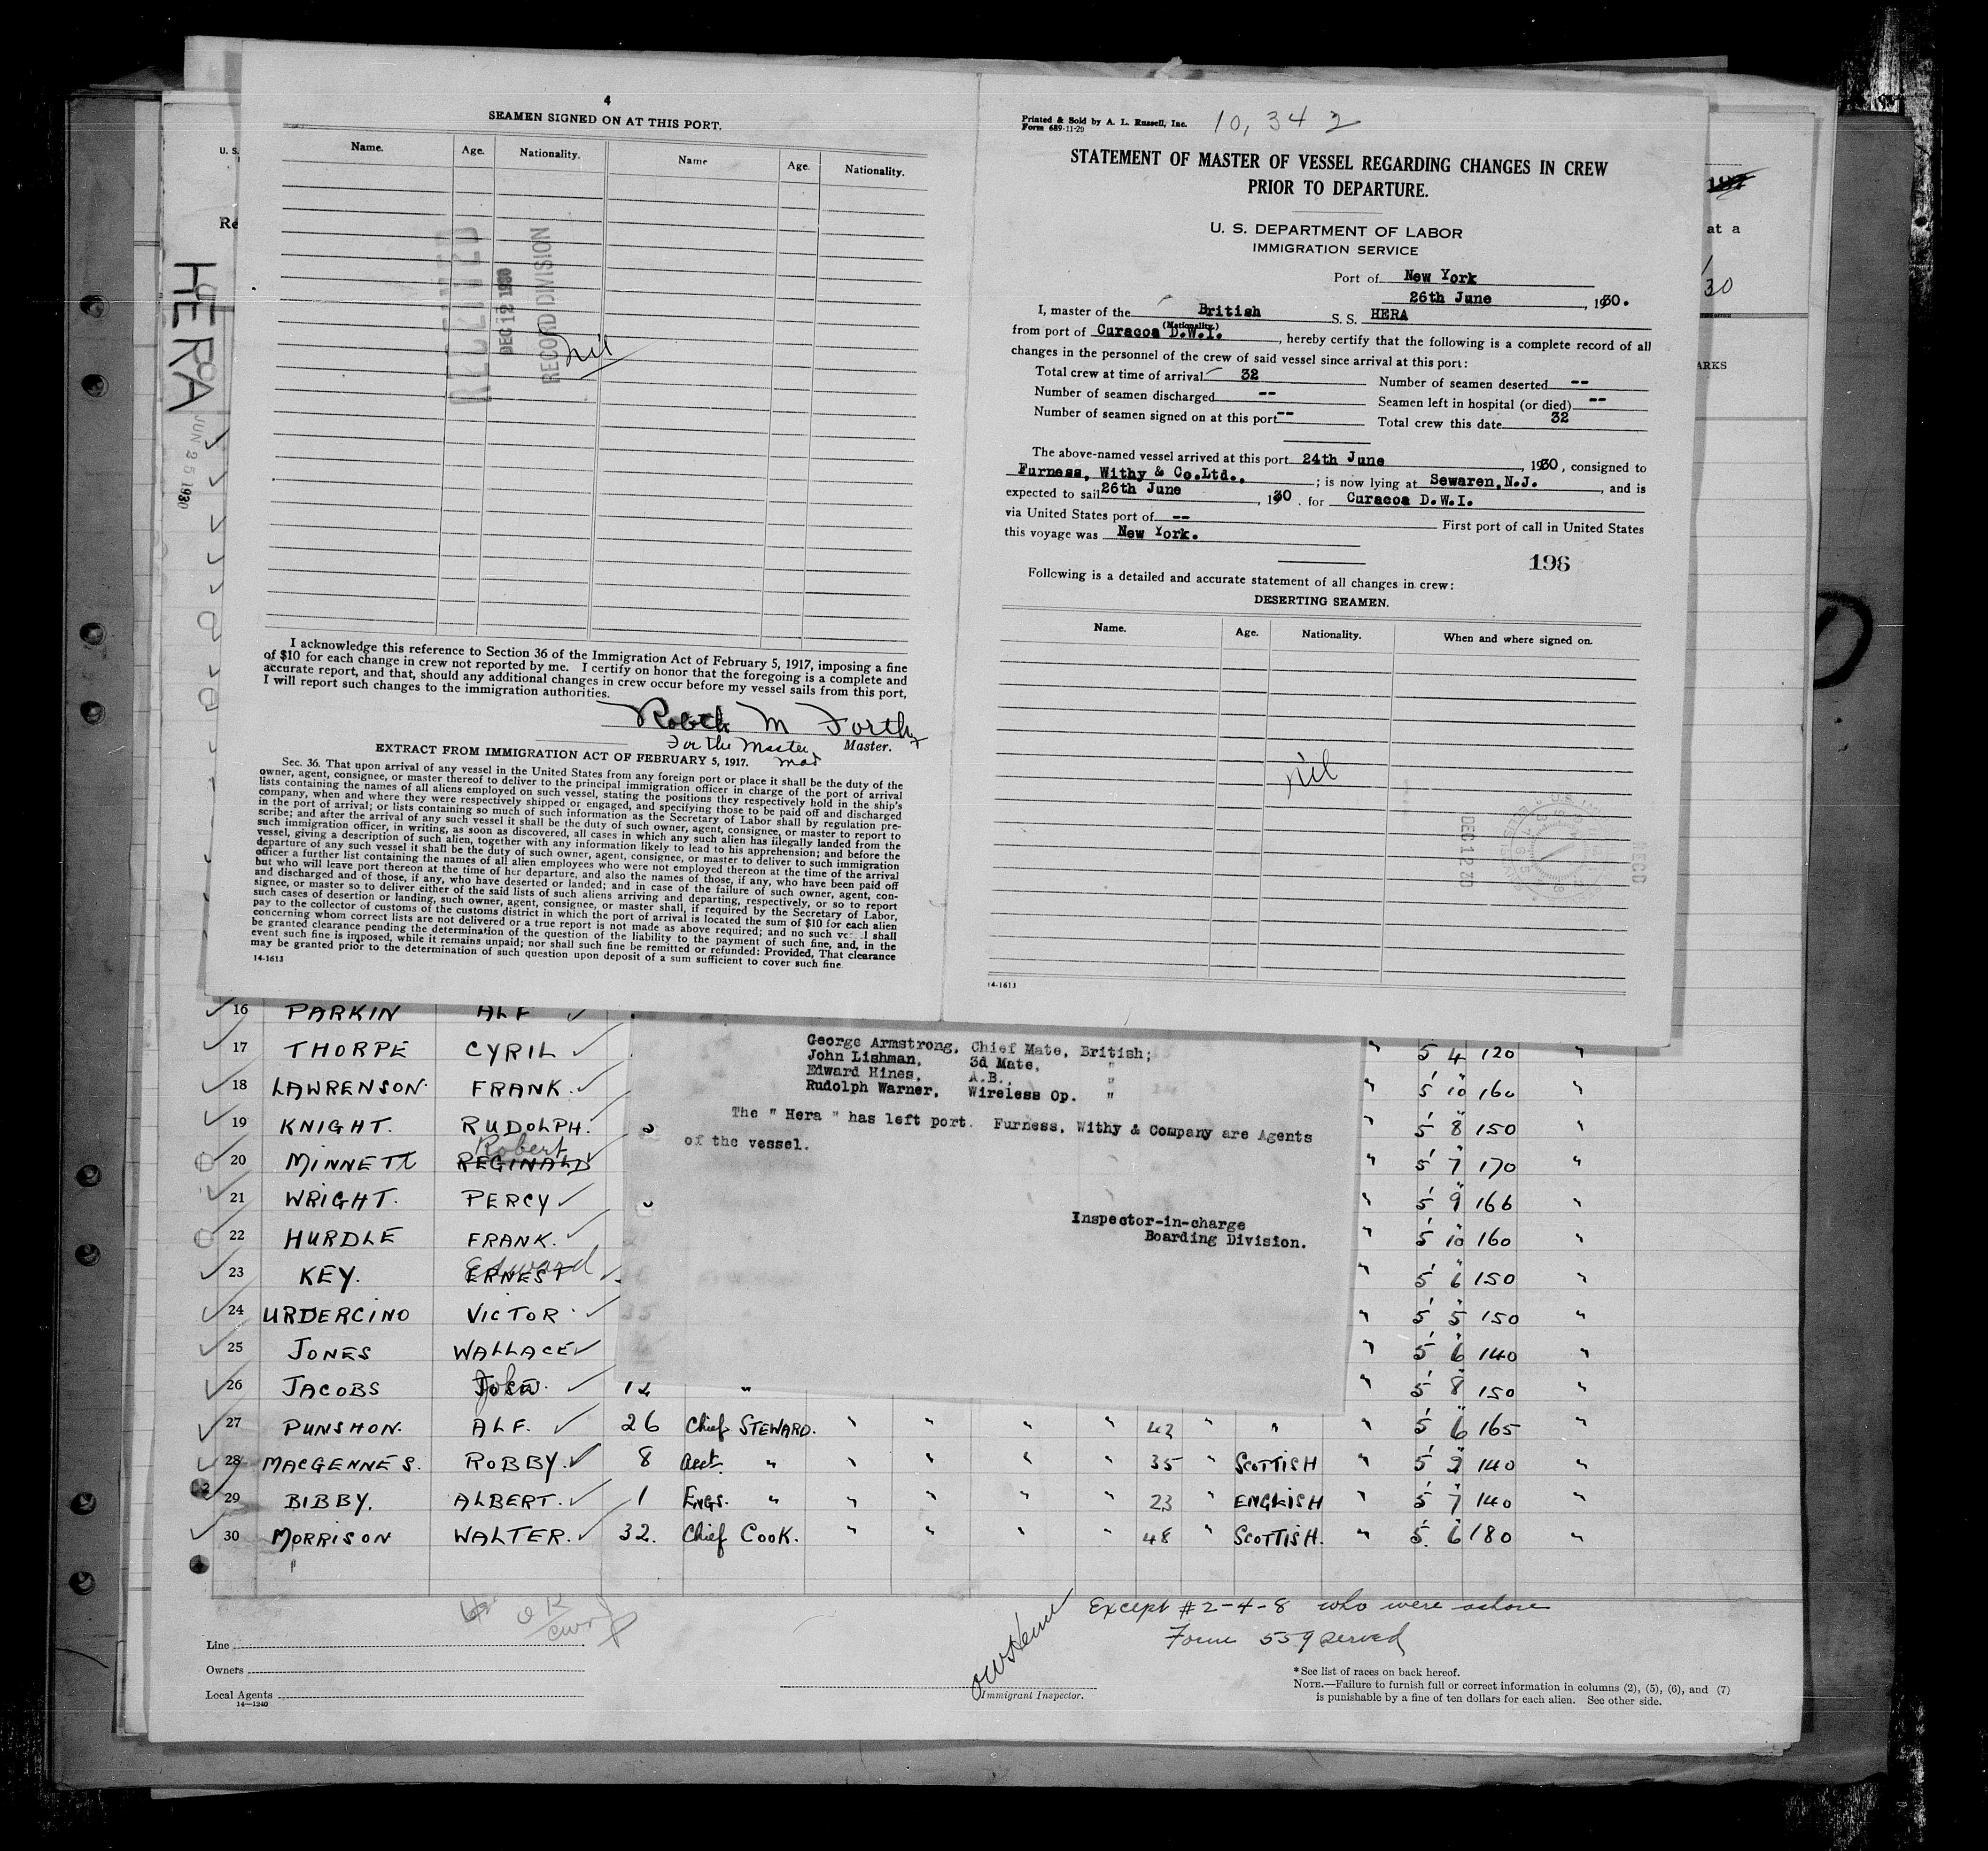 4
SEAMEN SIGNED ON AT THIS PORT.
Name. Age. Nationality. Name Age. Nationality.
RECEIVED
DEC 12 1930
RECORD DIVISION
nil
I acknowledge this reference to Section 36 of the Immigration Act of February 5, 1917, imposing a fine
of $10 for each change in crew not reported by me. I certify on honor that the foregoing is a complete and
accurate report, and that, should any additional changes in crew occur before my vessel sails from this port,
I will report such changes to the immigration authorities.
M Forth
For the Master Master.
EXTRACT FROM IMMIGRATION ACT OF FEBRUARY 5, 1917.
Sec. 36. That upon arrival of any vessel in the United States from any foreign port or place it shall be the duty of the
owner, agent, consignee, or master thereof to deliver to the principal immigration officer in charge of the port of arrival
lists containing the names of all aliens employed on such vessel, stating the positions they respectively hold in the ship's
company, when and where they were respectively shipped or engaged, and specifying those to be paid off and discharged
in the port of arrival; or lists containing so much of such information as the Secretary of Labor shall by regulation pre-
scribe; and after the arrival of any such vessel it shall be the duty of such owner, agent, consignee, or master to report to
such immigration officer, in writing, as soon as discovered, all cases in which any such alien has illegally landed from the
vessel, giving a description of such alien, together with any information likely to lead to his apprehension; and before the
departure of any such vessel it shall be the duty of such owner, agent, consignee, or master to deliver to such immigration
officer a further list containing the names of all alien employees who were not employed thereon at the time of the arrival
but who will leave port thereon at the time of her departure, and also the names of those, if any, who have been paid off
and discharged and of those, if any, who have deserted or landed; and in case of the failure of such owner, agent, con-
signee, or master so to deliver either of the said lists of such aliens arriving and departing, respectively, or so to report
such cases of desertion or landing, such owner, agent, consignee, or master shall, if required by the Secretary of Labor,
pay to the collector of customs of the customs district in which the port of arrival is located the sum of $10 for each alien
concerning whom correct lists are not delivered or a true report is not made as above required; and no such ve l shall
be granted clearance pending the determination of the question of the liability to the payment of such fine, and, in the
event such fine is imposed, while it remains unpaid; nor shall such fine be remitted or refunded: Provided, That clearance
may be granted prior to the determination of such question upon deposit of a sum sufficient to cover such fine.
14-1613
Printed & Sold by A. L. Russell, Inc.
Form 689-11-29
10,342
STATEMENT OF MASTER OF VESSEL REGARDING CHANGES IN CREW
PRIOR TO DEPARTURE.
U. S. DEPARTMENT OF LABOR
IMMIGRATION SERVICE
Port of New York
26th June, 1930.
I, master of the British S. S. HERA
(Nationality.)
from port of Curacoa D.W.I., hereby certify that the following is a complete record of all
changes in the personnel of the crew of said vessel since arrival at this port:
Total crew at time of arrival 32 Number of seamen deserted --
Number of seamen discharged -- Seamen left in hospital (or died) --
Number of seamen signed on at this port -- Total crew this date 32
The above-named vessel arrived at this port 24th June, 1930, consigned to
Furness, Withy & Co.Ltd., ; is now lying at Sewaren, N.J., and is
expected to sail 26th June, 1930. for Curacoa D.W.I.
via United States port of -- First port of call in United States
this voyage was New York.
196
Following is a detailed and accurate statement of all changes in crew:
DESERTING SEAMEN.
Name. Age. Nationality. When and where signed on.
nil
DEC 12 30
RECD
14-1613
U. S.
Re
HERA
JUN 25 1930
at a
30
ARKS
George Armstrong, Chief Mate, British;
John Lishman, 3d Mate, "
Edward Hines, A.B., "
Rudolph Warner, Wireless Op. "
The " Hera " has left port. Furness, Withy & Company are Agents
of the vessel.
Inspector-in-charge
Boarding Division.
16 PARKIN ALF
17 THORPE CYRIL " 5 4 120 "
18 LAWRENSON. FRANK. " 5 10 160 "
19 KNIGHT. RUDOLPH. " 5 8 150 "
20 MINNETT REGINALD Robert " 5 7 170 "
21 WRIGHT. PERCY " 5 9 166 "
22 HURDLE FRANK. " 5 10 160 "
23 KEY. ERNEST Edward " 5 6 150 "
24 URDERCINO VICTOR 35 " 5 5 150 "
25 JONES WALLACE " 5 6 140 "
26 JACOBS John 12 " " 5 8 150 "
27 PUNSHON. ALF. 26 Chief STEWARD. " " " " 42 " " " 5 6 165 "
28 MACGENNES. ROBBY. 8 Asst. " " " " " 35 " SCOTTISH " 5 9 140 "
29 BIBBY. ALBERT. 1 ENGS. " " " " " 23 " ENGLISH " 5 7 140 "
30 MORRISON WALTER. 32. Chief COOK. " " " " 48 " SCOTTISH. " 5 6 180 "
"
OK
Except #2-4-8 who were ashore
Form 559 served
Line
Owners
Local Agents
14-1240
Immigrant Inspector.
*See list of races on back hereof.
NOTE.—Failure to furnish full or correct information in columns (2), (5), (6), and (7)
is punishable by a fine of ten dollars for each alien. See other side.